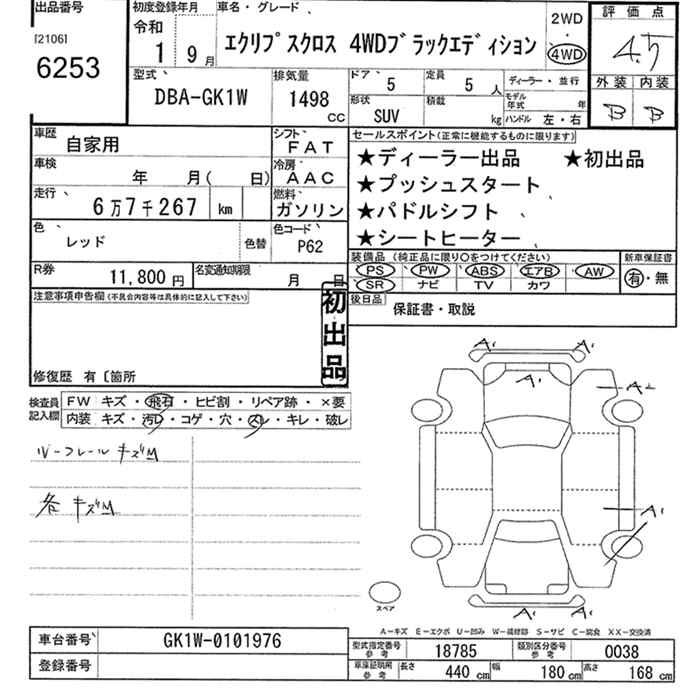 出品番号 初度登録年月 車名・グレード 評価点
[2106] 令和 2WD
6253 1 9月 エクリプスクロス 4WDブラックエディション ・ 4.5
4WD
外装 内装
型式 排気量 ドア 定員 ディーラー・並行 B B
DBA-GK1W 1498 CC 5 5人 モデル年式 年
形状 積載 ハンドル 左・右
SUV kg
車歴 自家用 シフト FAT セールスポイント(正常に機能するものに限ります)
車検 年 月( 日) 冷房 AAC ★ディーラー出品 ★初出品
走行 6万7千267 km 燃料 ガソリン ★プッシュスタート
★パドルシフト
色 レッド 色替 色コード P62 ★シートヒーター
装備品(純正品に限り○をつけてください) 新車保証書
R券 11,800円 名変通知期限 月 日 PS PW ABS エアB AW 有・無
SR ナビ TV カワ
注意事項申告欄(不具合内容等は具体的に記入して下さい) 初出品 後日品 保証書・取説
修復歴 有〔箇所
検査員記入欄 FW キズ・飛石・ヒビ割・リペア跡・×要
内装 キズ・汚レ・コゲ・穴・スレ・キレ・破レ
ルーフレールキズM
各キズM
A1 A1
A1
A2
A1
A1 A1
スペア
A-キズ E-エクボ U-凹み W-補修跡 S-サビ C-腐食 XX-交換済
車台番号 GK1W-0101976 型式指定番号参考 18785 類別区分番号参考 0038
登録番号 車庫証明用参考 長さ 440 cm 幅 180 cm 高さ 168 cm